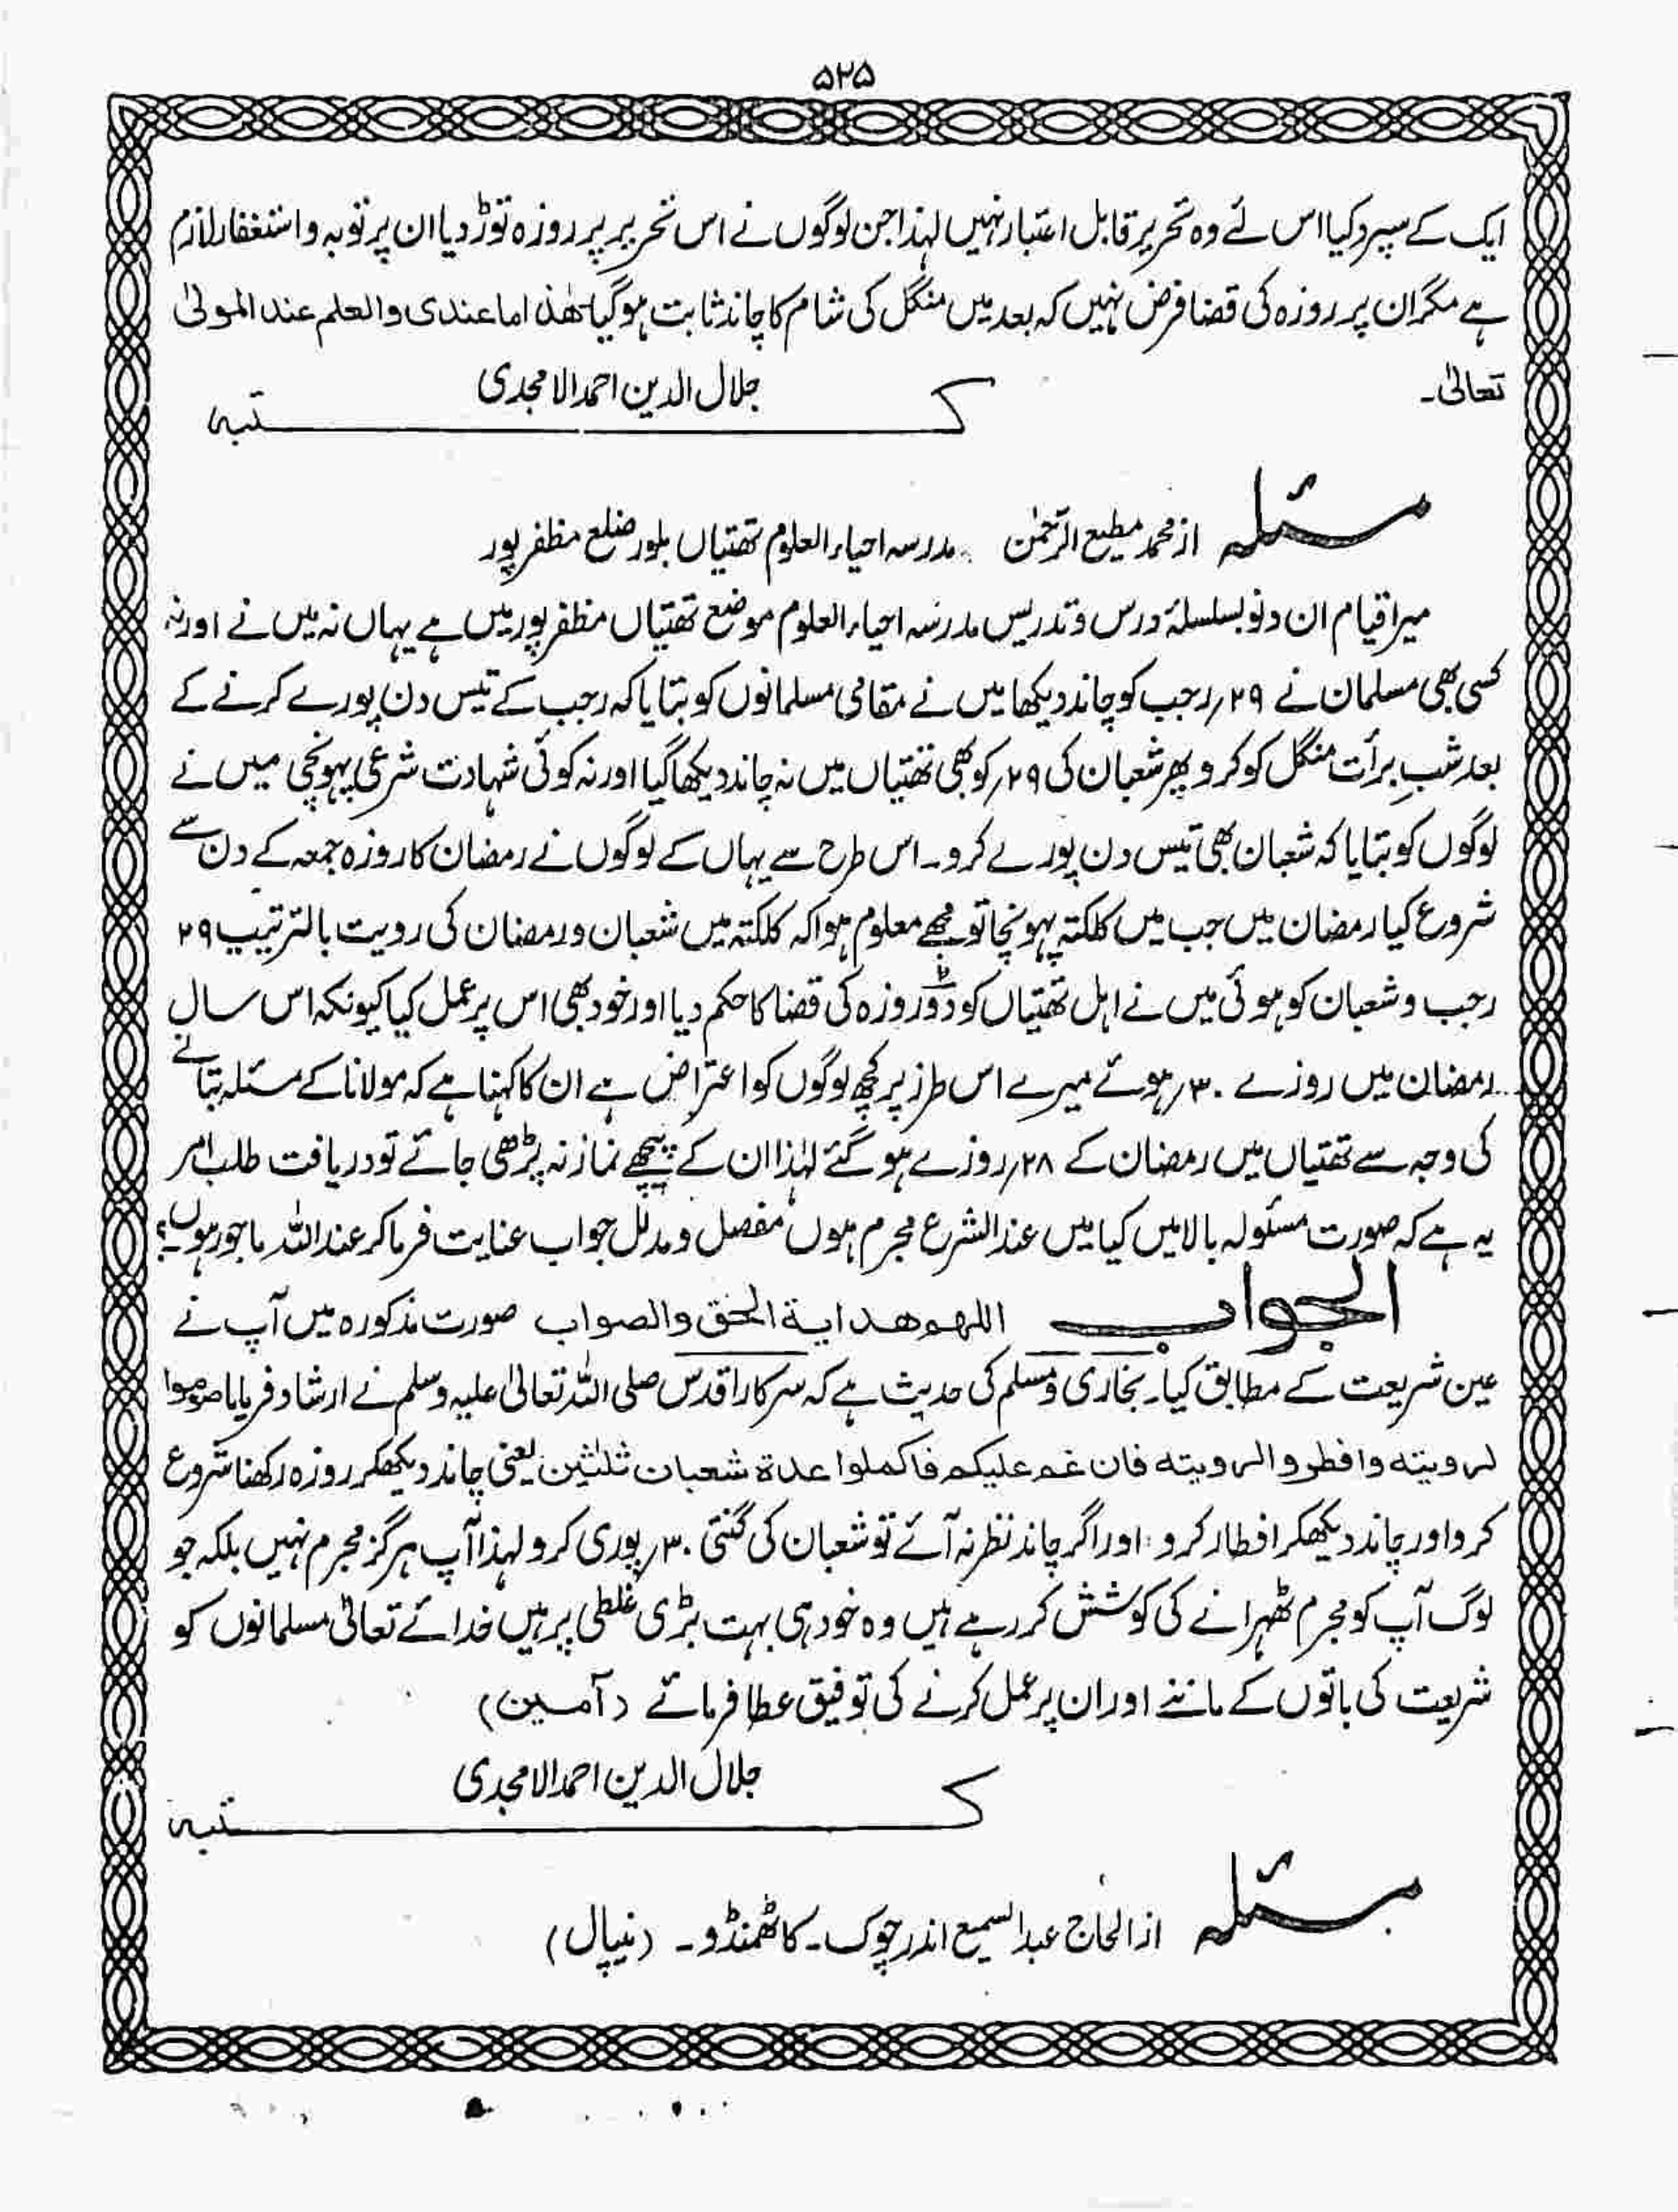 ۵۲۵
ایک کے سپرد کیا اس لئے وہ تحریر قابل اعتبار نہیں لہذا جن لوگوں نے اس تحریر پر روزہ توڑ دیا ان پر توبہ و استغفار لازم
ہے مگر ان پر روزہ کی قضا فرض نہیں کہ بعد میں منگل کی شام کا چاند ثابت ہوگیا ھٰذا ما عندی والعلم عند المولیٰ
تعالیٰ۔
جلال الدین احمد الامجدی
کتبہ
مسئلہ از محمد مطیع الرحمٰن مدرسہ احیاء العلوم تھتیاں بلور ضلع مظفر پور
میرا قیام ان دنو بسلسلۂ درس و تدریس مدرسہ احیاء العلوم موضع تھتیاں مظفر پور میں ہے یہاں نہ میں نے اور نہ
کسی بھی مسلمان نے ۲۹؍ رجب کو چاند دیکھا میں نے مقامی مسلمانوں کو بتایا کہ رجب کے تیس دن پورے کرنے کے
بعد شبِ برأت منگل کو کرو پھر شعبان کی ۲۹؍ کو بھی تھتیاں میں نہ چاند دیکھا گیا اور نہ کوئی شہادت شرعی پہونچی میں نے
لوگوں کو بتایا کہ شعبان بھی تیس دن پورے کرو۔ اس طرح سے یہاں کے لوگوں نے رمضان کا روزہ جمعہ کے دن سے
شروع کیا رمضان میں جب میں کلکتہ پہونچا تو مجھے معلوم ہوا کہ کلکتہ میں شعبان و رمضان کی رویت بالترتیب ۲۹
رجب و شعبان کو ہوئی میں نے اہل تھتیاں کو دو روزہ کی قضا کا حکم دیا اور خود بھی اس پر عمل کیا کیونکہ اس سال
رمضان میں روزے ۳۰؍ ہوئے میرے اس طرز پر کچھ لوگوں کو اعتراض ہے ان کا کہنا ہے کہ مولانا کے مسئلہ بتانے
کی وجہ سے تھتیاں میں رمضان کے ۲۸؍ روزے ہوگئے لہٰذا ان کے پیچھے نماز نہ پڑھی جائے تو دریافت طلب امر
یہ ہے کہ صورت مسئولہ بالا میں کیا میں عند الشرع مجرم ہوں مفصل و مدلل جواب عنایت فرما کر عند اللہ ماجور ہوں؟
الجواب اللہم ھدایۃ الحق والصواب صورت مذکورہ میں آپ نے
عین شریعت کے مطابق کیا۔ بخاری و مسلم کی حدیث ہے کہ سرکار اقدس صلی اللہ تعالیٰ علیہ وسلم نے ارشاد فرمایا صوموا
لرویتہ وافطروا لرویتہ فان غم علیکم فاکملوا عدۃ شعبان ثلٰثین یعنی چاند دیکھکر روزہ رکھنا شروع
کرو اور چاند دیکھکر افطار کرو اور اگر چاند نظر نہ آئے تو شعبان کی گنتی ۳۰؍ پوری کرو لہذا آپ ہرگز مجرم نہیں بلکہ جو
لوگ آپ کو مجرم ٹھہرانے کی کوشش کررہے ہیں وہ خود ہی بہت بڑی غلطی پر ہیں خدائے تعالیٰ مسلمانوں کو
شریعت کی باتوں کے ماننے اور ان پر عمل کرنے کی توفیق عطا فرمائے (آمین)
جلال الدین احمد الامجدی
کتبہ
مسئلہ از الحاج عبد السمیع اندر چوک۔ کاٹھمنڈو۔ (نیپال)